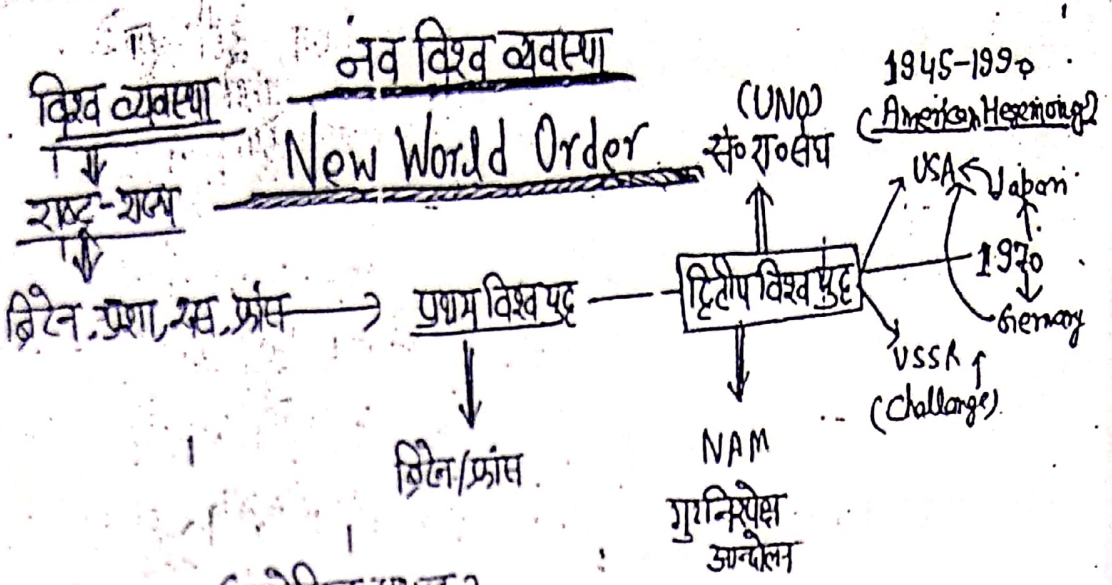 नव विश्व व्यवस्था
New World Order
विश्व व्यवस्था
राष्ट्र-राज्य
ब्रिटेन, प्रशा, रूस, फ्रांस
प्रथम विश्व युद्ध
ब्रिटेन/फ्रांस
(UNO)
सं॰ रा॰ संघ
द्वितीय विश्व युद्ध
NAM
गुटनिरपेक्ष
आन्दोलन
1945-1990
(American Hegemony)
USA
Japan
1970
Germany
USSR
(Challange)